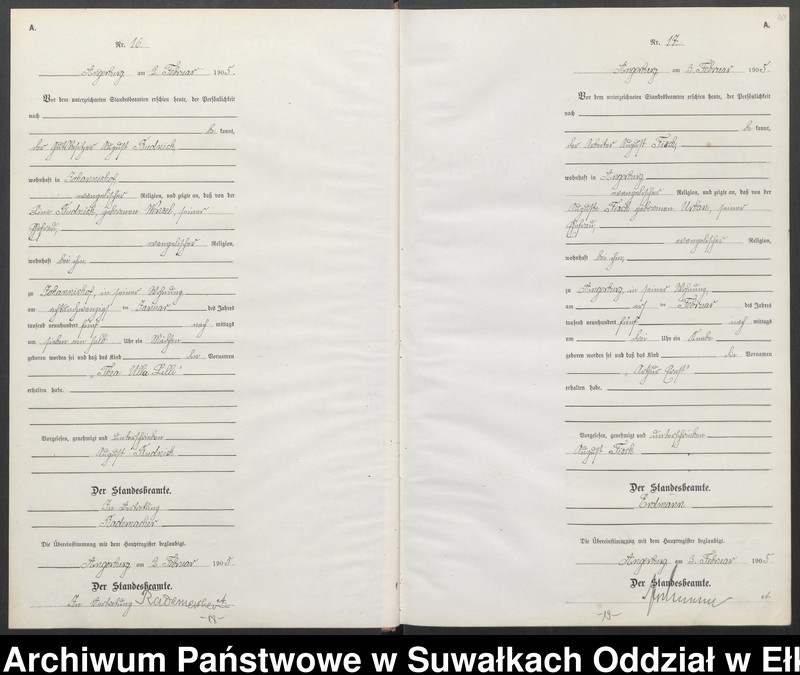 A.
Nr. 16
Angerburg am 2. Februar 1905.
Vor dem unterzeichneten Standesbeamten erschien heute, der Persönlichkeit
nach
be kannt,
der August
wohnhaft in Johannishof
evangelischer Religion, und zeigte an, daß von der
geborenen seiner
Ehefrau,
evangelischer Religion,
wohnhaft bei ihm,
zu Johannishof, in seiner Wohnung
am achtundzwanzigsten Januar des Jahres
tausend neunhundert fünf nach mittags
um sieben ein halb Uhr ein Mädchen
geboren worden sei und daß das Kind die Vornamen
"Thea Ulla Lilli"
erhalten habe.
Vorgelesen, genehmigt und unterschrieben
August
Der Standesbeamte.
In Vertretung
Rademacher
Die Übereinstimmung mit dem Hauptregister beglaubigt.
Angerburg am 2. Februar 1905.
Der Standesbeamte.
In Vertretung Rademacher
A.
Nr. 17
Angerburg am 3. Februar 1905.
Vor dem unterzeichneten Standesbeamten erschien heute, der Persönlichkeit
nach
be kannt,
der Arbeiter August
wohnhaft in Angerburg
evangelischer Religion, und zeigte an, daß von der
Auguste geborenen Urban, seiner
Ehefrau,
evangelischer Religion,
wohnhaft bei ihm,
zu Angerburg, in seiner Wohnung,
am ersten Februar des Jahres
tausend neunhundert fünf nach mittags
um drei Uhr ein Knabe
geboren worden sei und daß das Kind die Vornamen
"Arthur Ernst"
erhalten habe.
Vorgelesen, genehmigt und unterschrieben
August
Der Standesbeamte.
Erdmann
Die Übereinstimmung mit dem Hauptregister beglaubigt.
Angerburg am 3. Februar 1905
Der Standesbeamte.
-19-
Archiwum Państwowe w Suwałkach Oddział w Ełk